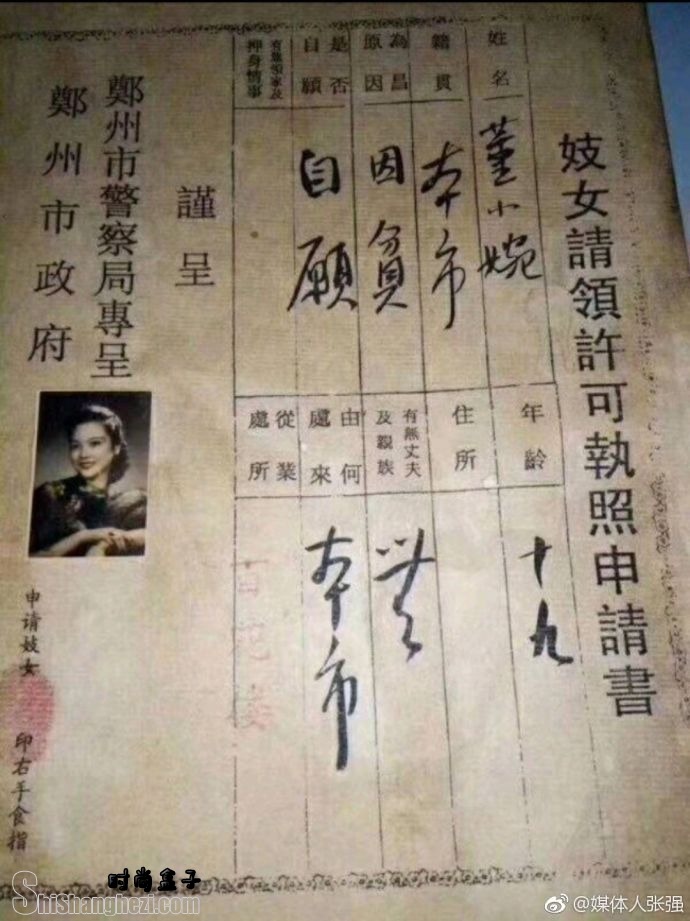 妓女請領許可執照申請書
姓名
董小婉
年齡
十九
籍貫
本市
住所
為昌原因
因貧
有無丈夫及親族
無
是否自願
自願
由何處來
本市
有無領家及押身情事
從業處所
百花楼
謹呈
鄭州市警察局專呈
鄭州市政府
申请妓女
印右手食指
时尚盒子
Shishanghezi.com
@媒体人张强